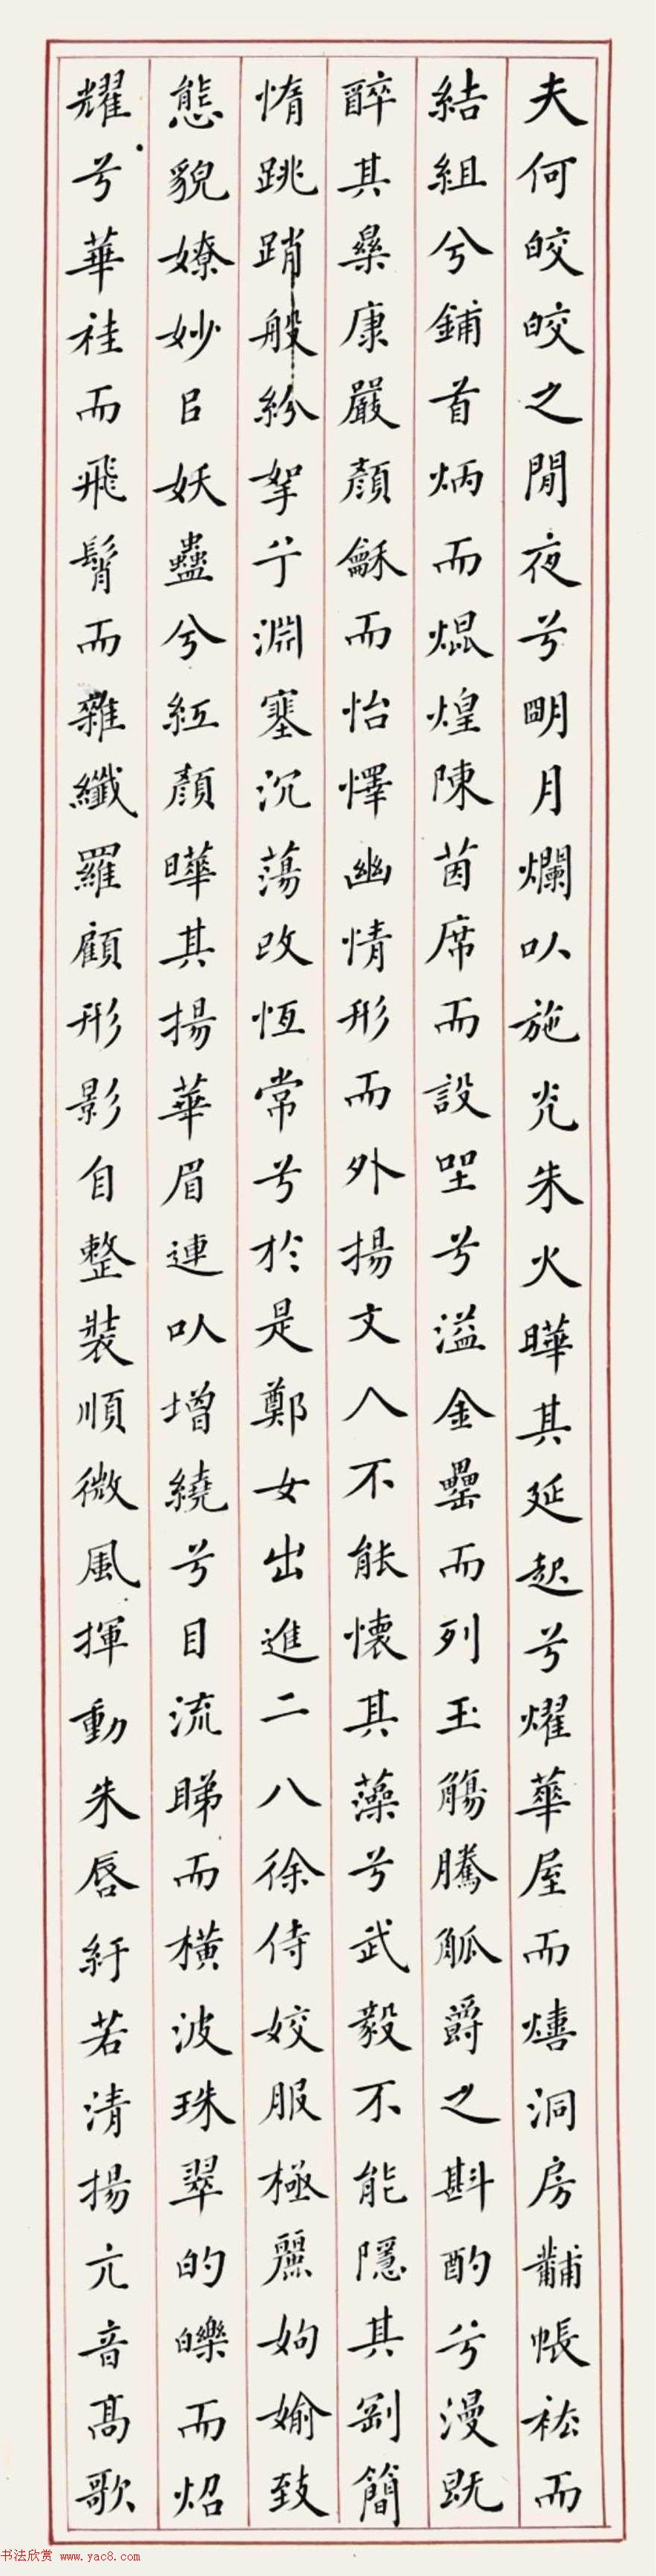 夫何皎皎之閒夜兮朙月爛㕥施灮朱火曄其延起兮燿華屋而熺洞房黼帳祛而
結組兮鋪首炳而焜煌陳茵席而設坐兮溢金罍而列玉觴騰觚爵之斟酌兮漫既
醉其樂康嚴顏龢而怡懌幽情形而外揚文人不能懷其藻兮武毅不能隱其剛簡
惰跳踃般紛挐兮淵塞沉蕩改恆常兮於是鄭女出進二八徐侍姣服極麗姁媮致
態貌嫽妙㠯妖蠱兮紅顏曄其揚華眉連㕥增繞兮目流睇而橫波珠翠的皪而炤
耀兮華袿而飛髾而雜纖羅顧形影自整裝順微風揮動朱唇紆若清揚亢音高歌
书法欣赏 www.yac8.com